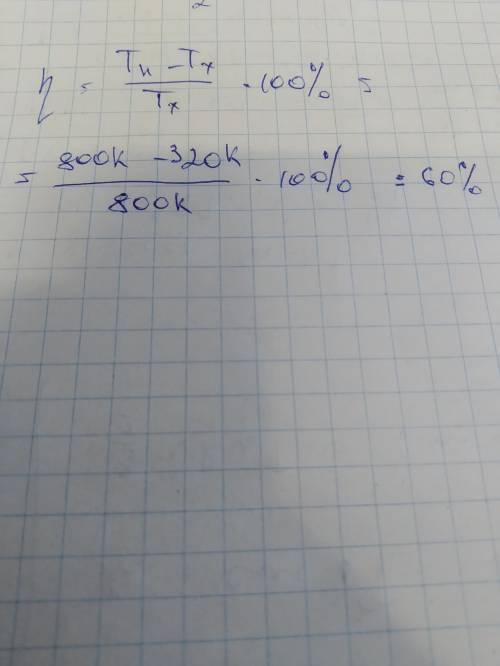 η = (Tн - Tx) / Tx · 100% =
= (800K - 320K) / 800K · 100% = 60%